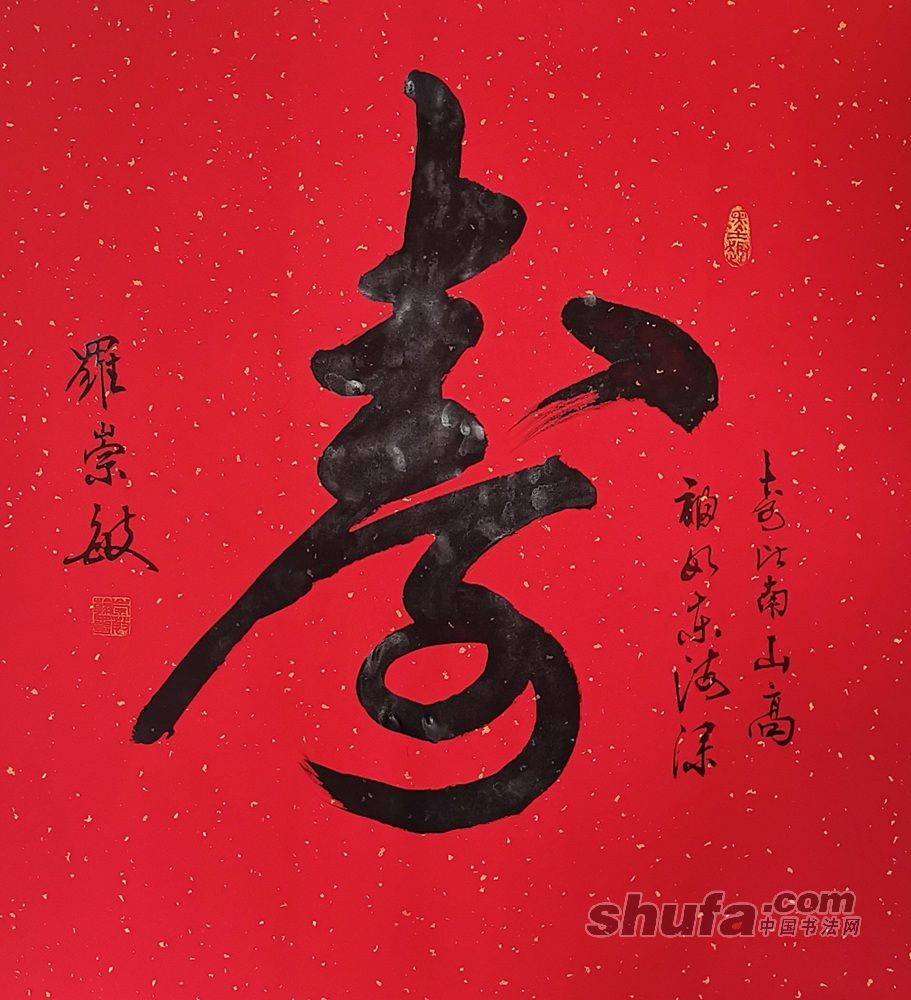 寿
寿比南山高
福如东海深
羅崇敏
shufa.com
中国书法网